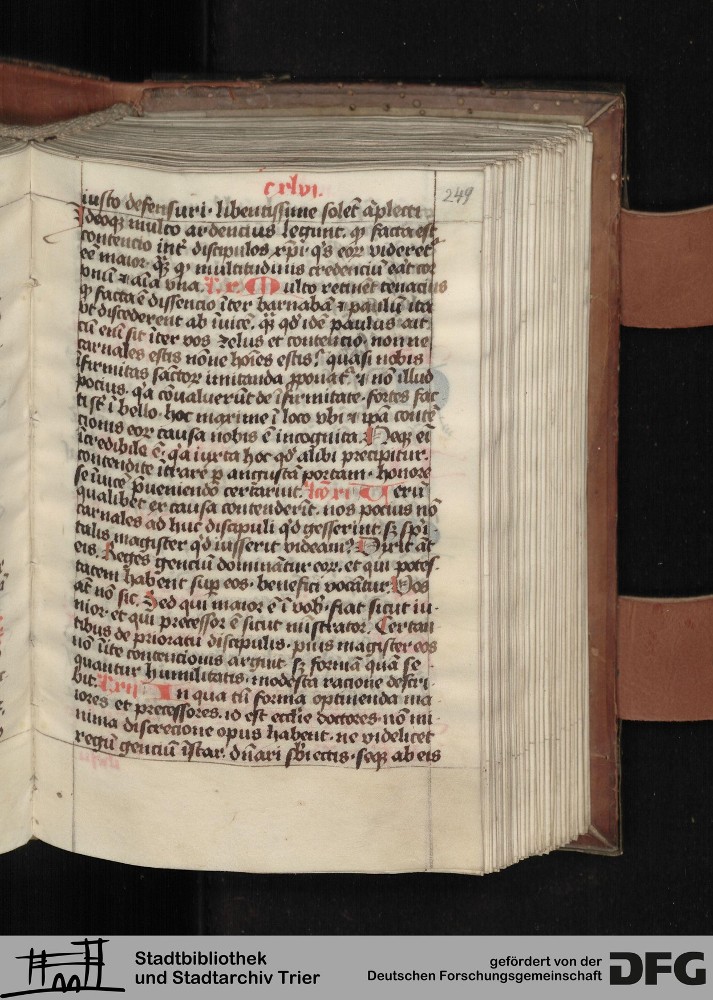 cxlvi.
249
iusto defensuri · libentissime solet āplecti
Ideoqꝫ multo ardencius legunt. qꝫ facta est
contencio int̄ discipulos xp̄i · q̇s eoꝝ videret᷑
ēē maior · q̄ꝫ qꝫ multitudinis credenciū erat cor
vnū ⁊ aīa vna. Multo retinet tenacius
qꝫ facta ē dissencio īter barnabā ⁊ paulū ita
vt discederent ab īuicē. q̄ꝫ qd̓ idē paulus ait
cū enī sit īter vos zelus et contencio · nonne
carnales estis nōne hoīes estis? quasi nobis
īfirmitas sāctoꝝ imitanda ꝓponat᷑ · ⁊ nō illud
pocius · q̇a cōualuerūt de īfirmitate · fortes fac
ti sūt ī bello · hoc maxime ī loco vbi ⁊ ip̄a contē
cionis eoꝝ causa nobis ē incognita. Neqꝫ eī
īcredibile ē · q̇a iuxta hoc qd̓ alibi precipitur ·
contendite ītrare ꝑ angustā portam · honore
se īuicē p̄ueniendo certarint. Verū
qualibet er causa contenderīt · nos pocius nō
carnales ad huc discipuli qd̓ gesserint · sꝫ spi
talis magister qd̓ iusserit videam᷒? Dixit āt
eis. Reges genciū dominātur eoꝝ · et qui potes
tatem habent suꝑ eos · benefici vocātur. Vos
āt nō sic. Sed qui maior ē ī vob̓ · fiat sicut iu
nior · et qui precessor ē sicut mīstrator. Certan
tibus de prioratu discipulis · pius magister eos
nō īite contencionis arguit · sꝫ formā quā se
quantur humilitatis · modesta racione descri
bit. In qua tn̄ forma optinenda ma
iores et precessores · id est ecclīe doctores · nō mi
nima discrecione opus habent · ne videlicet
regū genciū īstar · dn̄ari sb̓iectis · seqꝫ ab eis
Stadtbibliothek
und Stadtarchiv Trier
gefördert von der
Deutschen Forschungsgemeinschaft
DFG